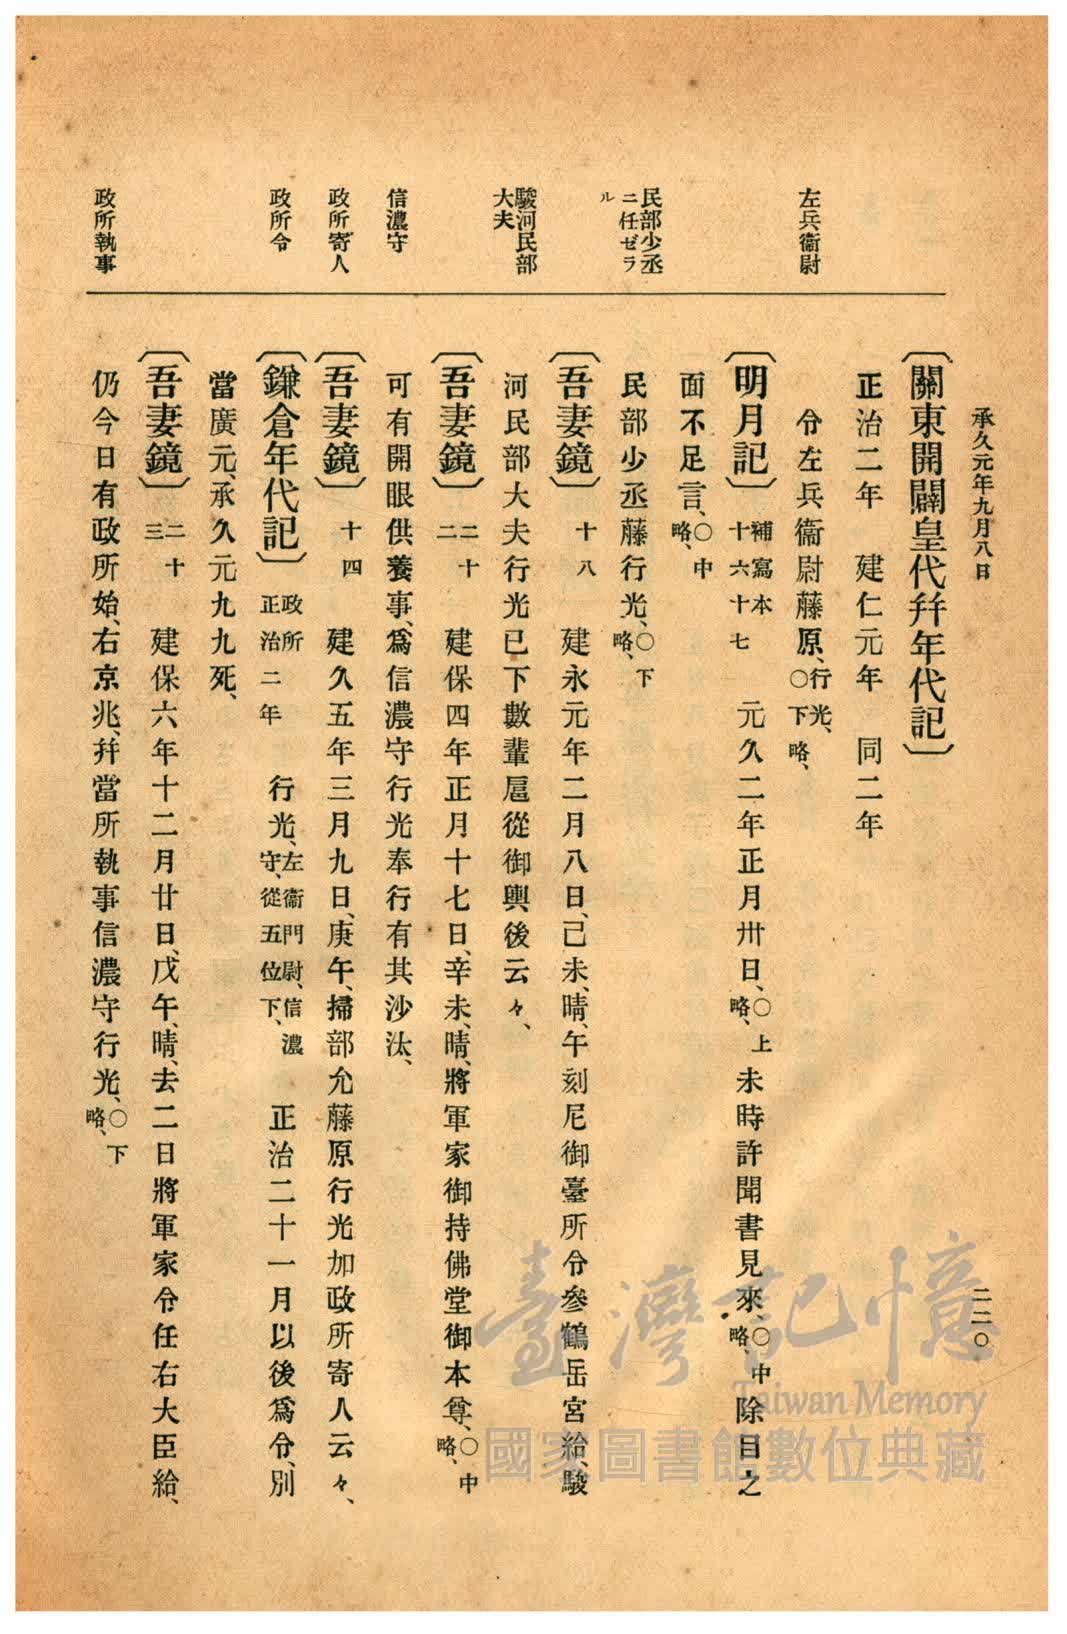 承久元年九月八日
二二〇
左兵衞尉
民部少丞
ニ任ゼラ
ル
駿河民部
大夫
信濃守
政所寄人
政所令
政所執事
〔關東開闢皇代幷年代記〕
正治二年　建仁元年　同二年
令左兵衞尉藤原、行光、〇下略、
〔明月記〕補寫本十六十七　元久二年正月卅日、〇上略、未時許聞書見來、〇中略、除目之
面不足言、〇中略、
民部少丞藤行光、〇下略、
〔吾妻鏡〕十八　建永元年二月八日、己未、晴、午刻尼御臺所令參鶴岳宮給、駿
河民部大夫行光已下數輩扈從御輿後云々、
〔吾妻鏡〕二十二　建保四年正月十七日、辛未、晴、將軍家御持佛堂御本尊、〇中略、
可有開眼供養事、爲信濃守行光奉行有其沙汰、
〔吾妻鏡〕十四　建久五年三月九日、庚午、掃部允藤原行光加政所寄人云々、
〔鎌倉年代記〕政所正治二年　行光、左衞門尉、信濃守、從五位下、　正治二十一月以後爲令、別
當廣元、承久元九九死、
〔吾妻鏡〕二十三　建保六年十二月廿日、戊午、晴、去二日將軍家令任右大臣給、
仍今日有政所始、右京兆、幷當所執事信濃守行光、〇下略、
臺灣記憶
Taiwan Memory
國家圖書館數位典藏